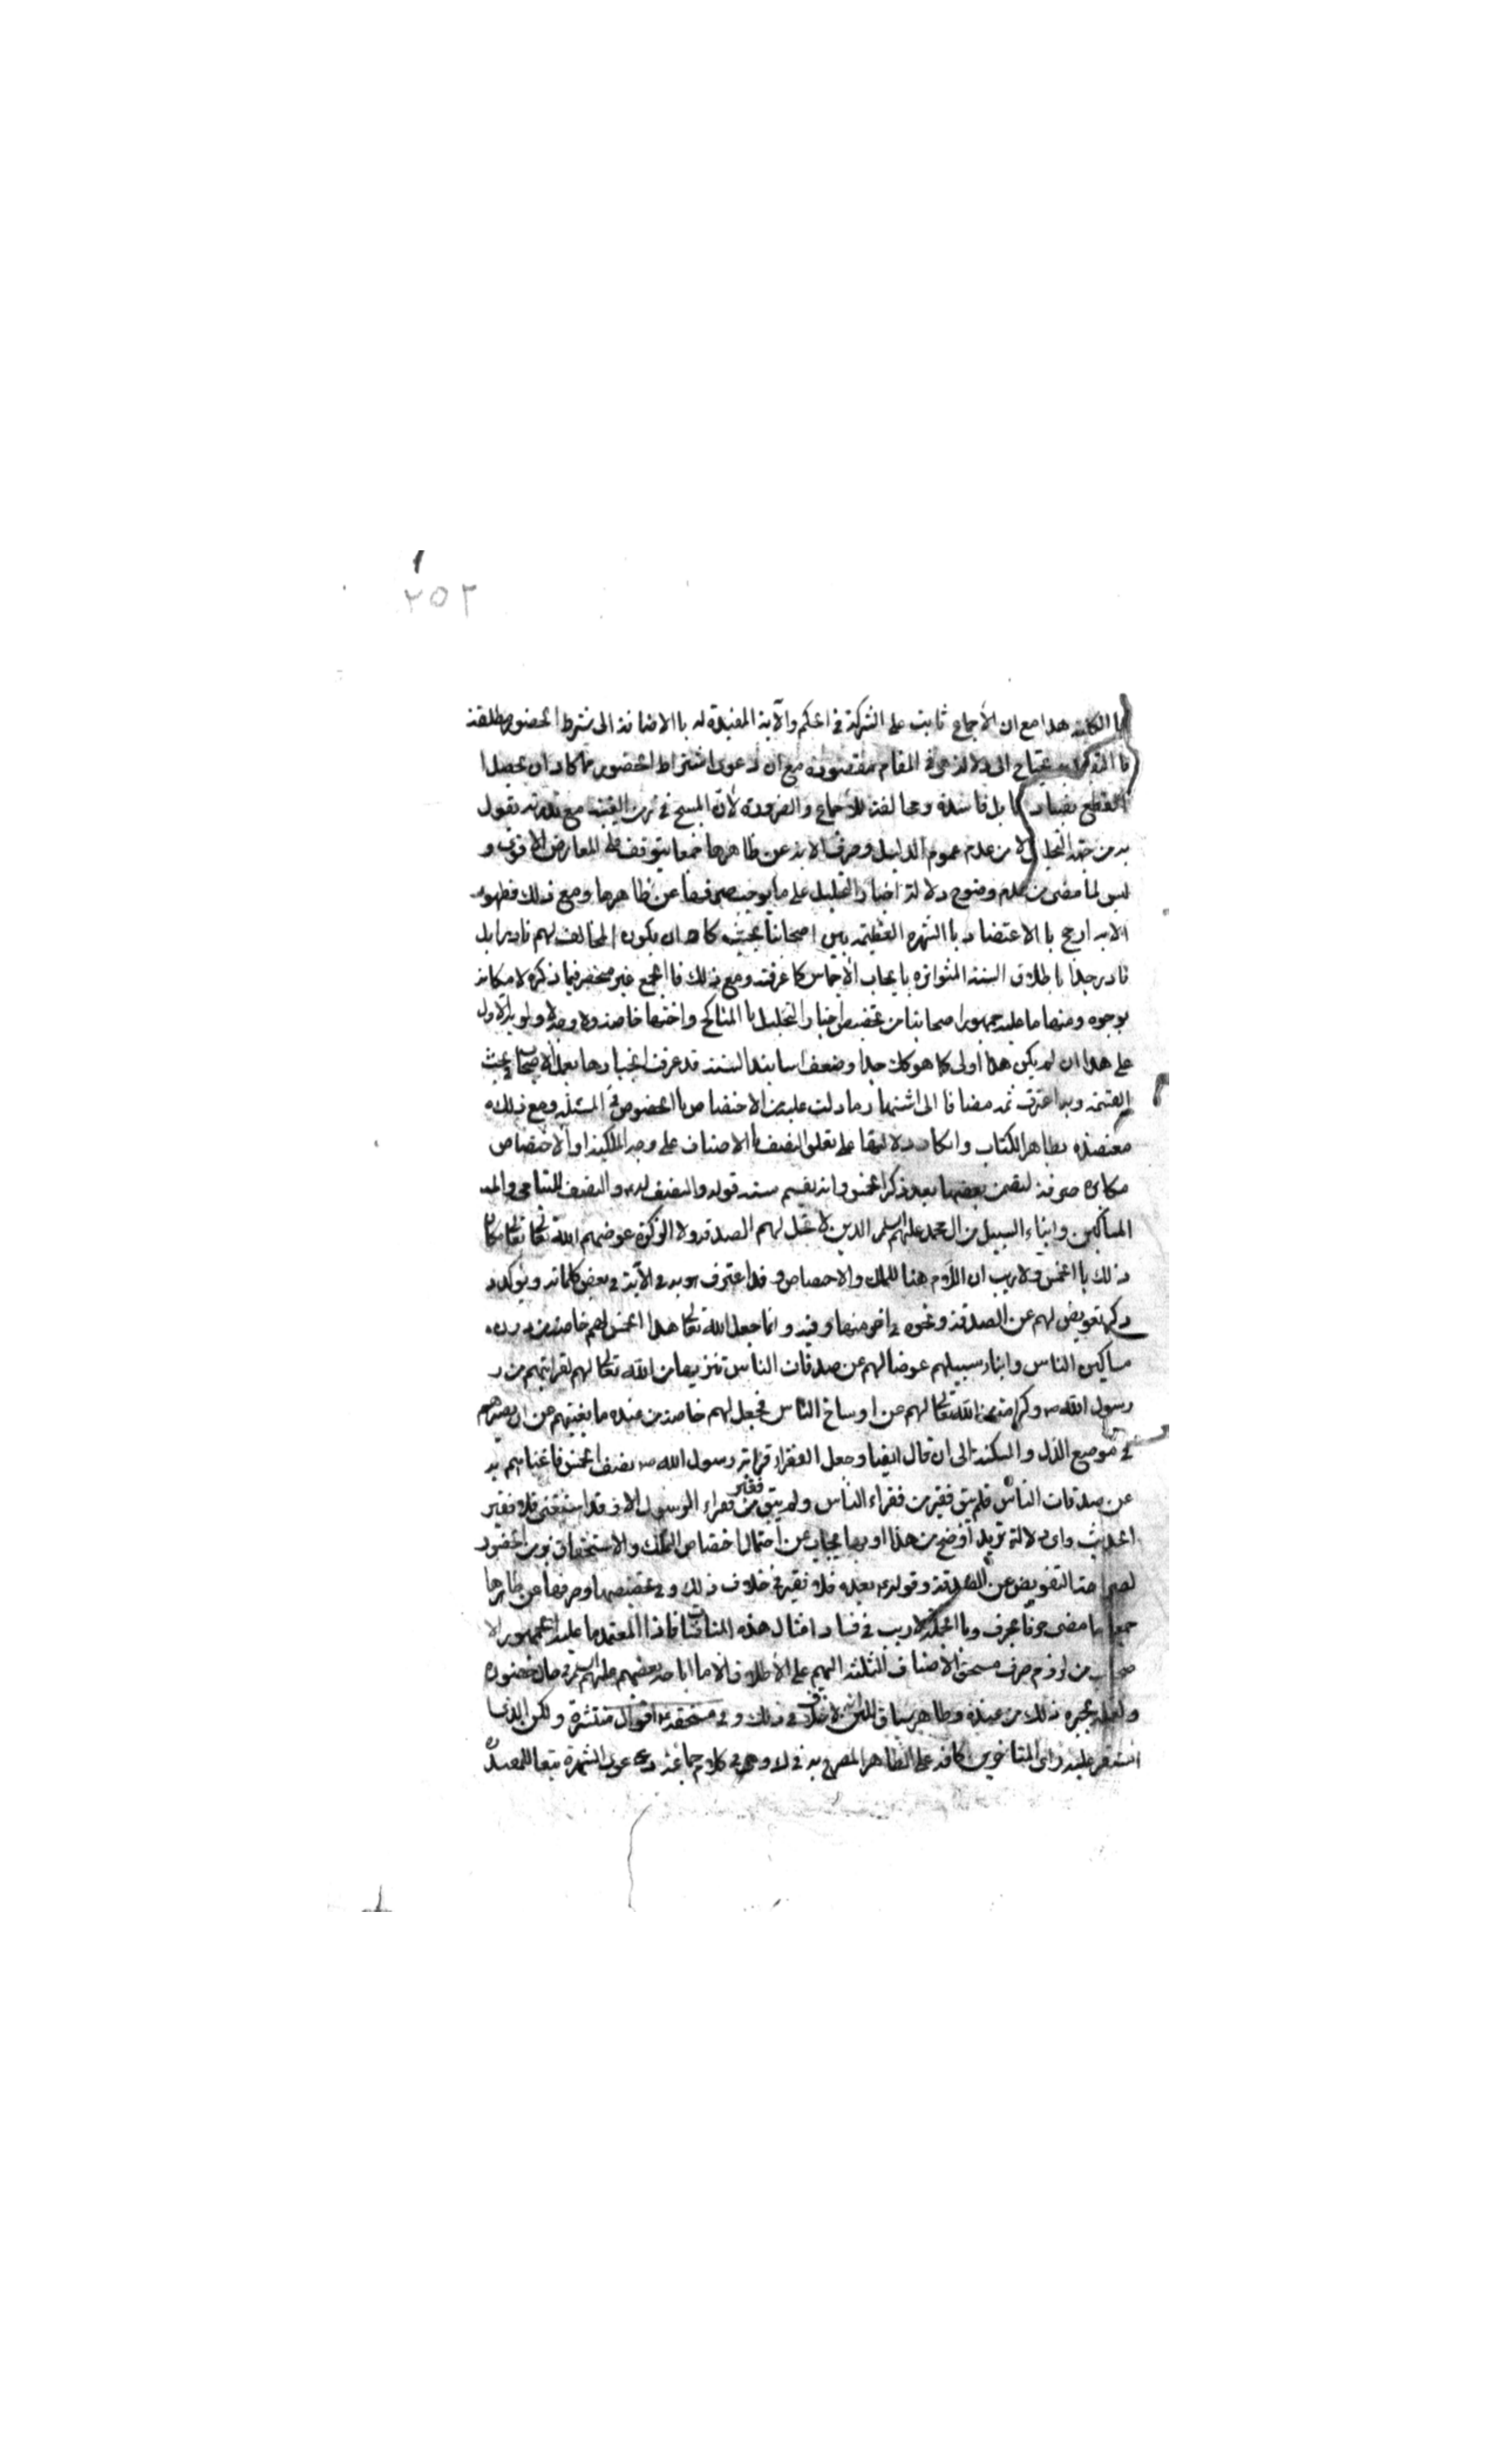 ٢٥٢
الكتاب هذا مع ان الأجماع ثابت على الشركة فى الحكم والآية المفيدة له با الاضافة الى شرط الحضور مطلقة
يحتاج الى دلالة هى فى المقام مفقودة مع ان دعوى اشتراط الحضور مما كاد ان يحصل
القطع بفساد بل فاسدة ومخالفة للأجماع والضرورة لأن المسح فى زمن الغيبة مع يقول
به من جهة التحليل لا من عدم عموم الدليل وصرف الاية عن ظاهرها جمعا يتوقف على المعارض الاقوى و
ليس لما مضى من عدم وضوح دلالة اخبار التحليل على ما يوجب صرفها عن ظاهرها ومع ذلك فظهور
الاية ارجح با الاعتضاد با الشهرة العظيمة بين اصحابنا بحيث كاد ان يكون المخالف لهم نادرا بل
نادر جدا با طلاق السنة المتواترة با يجاب الأخماس كما عرفته ومع ذلك فا الجمع غير منحصر فيما ذكره لامكانه
بوجوه ومنها ما عليه جمهور اصحابنا من تخصيص اخبار التحليل با المناكح واختها خاصة ولا وجه لاولوية الاول
على هذا ان لم يكن هذا اولى كما هو كك جدا وضعف اسانيد السنة قد عرفت انجبارها بعمل الاصحاب بحيث
القيمة وبه اعترف ثمه مضافا الى اشتهار ما دلت عليه من الاختصاص با الخصوص فى المسئلة ومع ذلك
معتضدة بظاهر الكتاب وانكار دلالتها على تعلق النصف با الاصناف على وجه الملكية او الاختصاص
مكابرة صرفة لتضمن بعضها بعد ذكر الخمس وانه يقسم ستة قوله والنصف له والنصف لليتامى والمـ
المساكين وابناء السبيل من ال محمد عليهم السلم الذين لا تحل لهم الصدقة ولا الزكوة عوضهم الله تعالى تعالى مكان
ذلك با الخمس ولا ريب ان اللام هنا للملك والاختصاص وقد اعترف هو به فى الآية فى بعض كلماته ويؤكده
ذكر تعويض لهم عن الصدقة ونحوه فى اخر منها وفيه وانما جعل الله تعالى هذا الخمس لهم خاصة من دون
مساكين الناس وابناء سبيلهم عوضا لهم عن صدقات الناس تنزيها من الله تعالى لهم لقرابتهم من ر
رسول الله ص وكرامة من الله تعالى لهم عن اوساخ الناس فجعل لهم خاصة من عنده ما يغنيهم عن ان يصيرهم
فى موضع الذل والمسكنة الى ان قال ايضا وجعل الفقراء قرابة رسول الله ص نصف الخمس فاغناهم به
عن صدقات الناس فلم يبق فقير من فقراء الناس ولم يبق فقير من فقراء الرسول الا وقد استغنى فلا فقير
الحديث واى دلالة تريد اوضح من هذا او بها يجاب عن احتمال اختصاص الملك والاستحقاق بزمن الحضور
لصراحة التعويض عن الصدقة وقوله بعده فلا فقير فى خلاف ذلك وفى تخصيصها وصرفها عن ظاهرها
جمعا ما مضى جوابا عرف وبا الجملة لا ريب فى فساد امثال هذه المناقشات فاذا المعتمد ما عليه الجمهور الا
صحاب من لزوم صرف مستحق الاصناف الثلثة اليهم على الأطلاق الا ما اباحه بعضهم عليهم السلم فى حال حضوره
وظاهر سياق لا خلاف فى ذلك وفى مستحقه اقوال منتشرة ولكن الذى
استقر عليه راى المتاخرين كافة على الظاهر المصرح به فى كلام جماعة دعوى الشهرة تبعا للمفيد